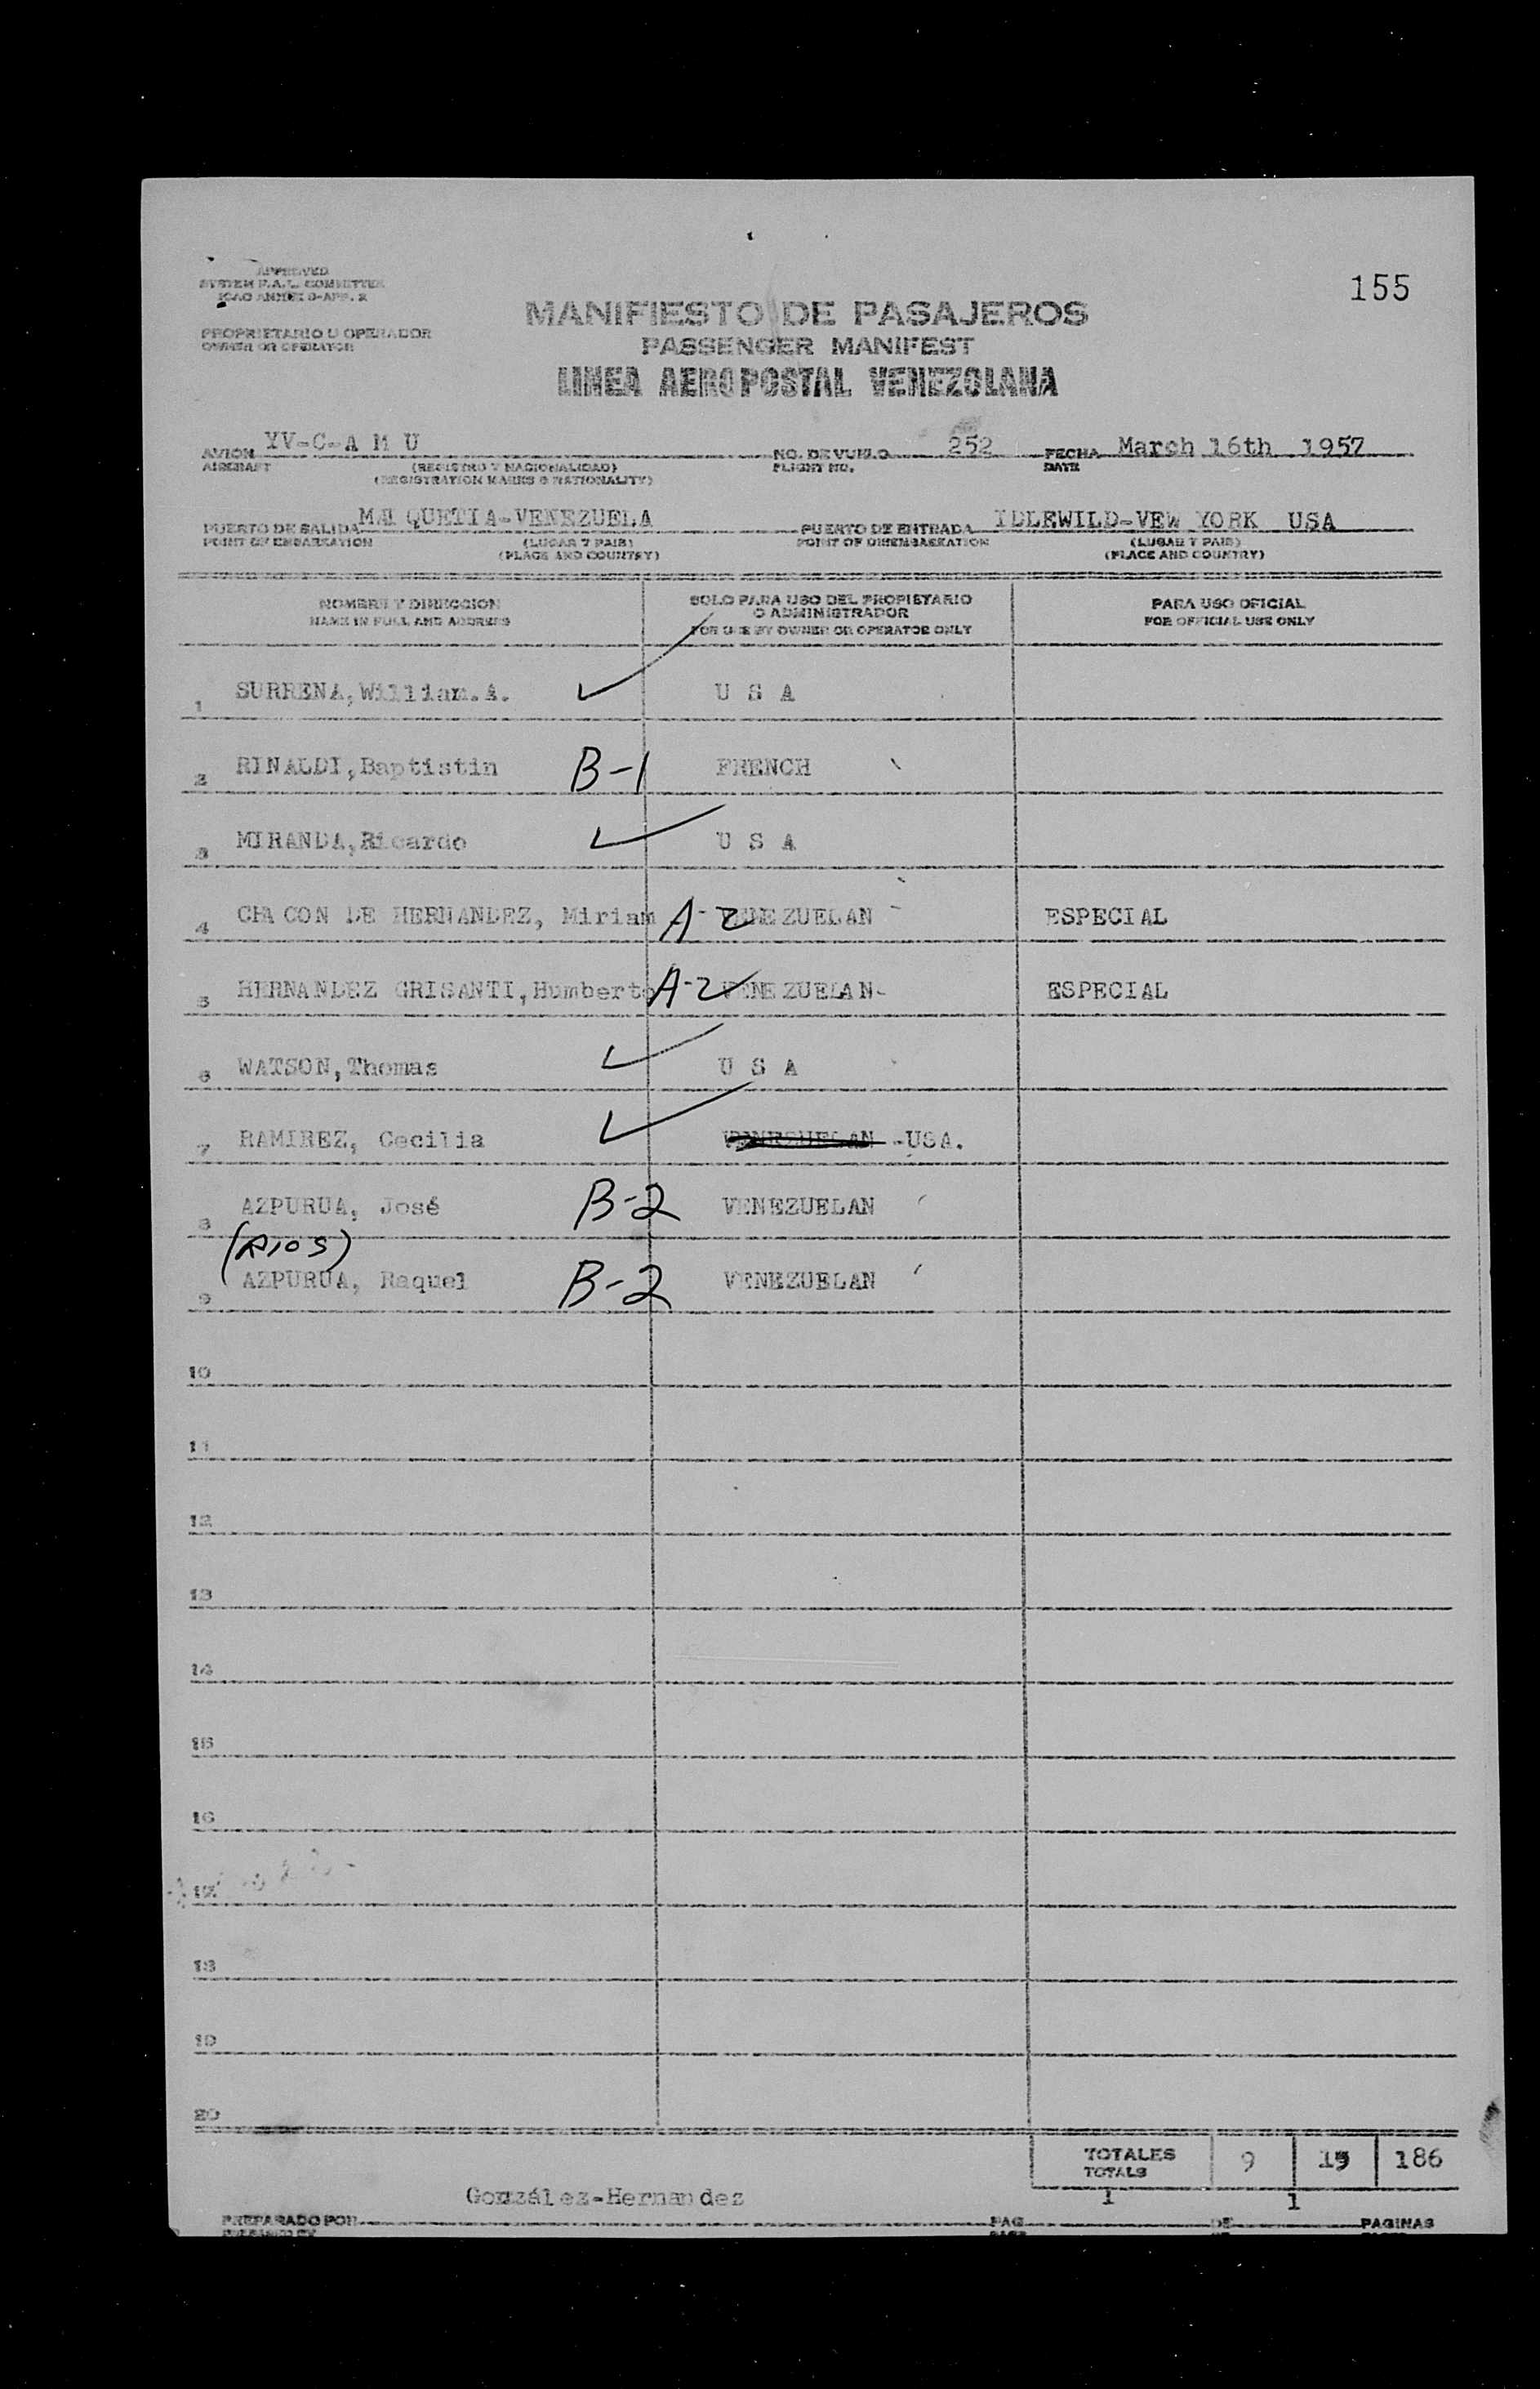 155
APPROVED
SYSTEM F.A.L. COMMITTEE
ICAO ANNEX 9-APP. 2
MANIFIESTO DE PASAJEROS
PROPRIETARIO U OPERADOR
OWNER OR OPERATOR
PASSENGER MANIFEST
LINEA AEROPOSTAL VENEZOLANA
AVION YV-C-A M U NO. DE VUELO 252 FECHA March 16th 1957
AIRCRAFT (REGISTRO Y NACIONALIDAD) FLIGHT NO. DATE
(REGISTRATION MARKS & NATIONALITY)
PUERTO DE SALIDA MAI QUETIA-VENEZUELA PUERTO DE ENTRADA IDLEWILD-VEW YORK USA
POINT OF EMBARKATION (LUGAR Y PAIS) POINT OF DISEMBARKATION (LUGAR Y PAIS)
(PLACE AND COUNTRY) (PLACE AND COUNTRY)
NOMBRE Y DIRECCION SOLO PARA USO DEL PROPIETARIO PARA USO OFICIAL
NAME IN FULL AND ADDRESS O ADMINISTRADOR FOR OFFICIAL USE ONLY
FOR USE BY OWNER OR OPERATOR ONLY
1 SURRENA,William.A. U S A
2 RINALDI,Baptistin B-1 FRENCH
3 MIRANDA,Ricardo U S A
4 CHA CON DE HERNANDEZ, Miriam A-2 VENEZUELAN ESPECIAL
5 HERNANDEZ GRISANTI,Humberto A-2 VENEZUELAN- ESPECIAL
6 WATSON,Thomas U S A
7 RAMIREZ, Cecilia VENEZUELAN -USA.
8 AZPURUA, José B-2 VENEZUELAN
(RIOS)
9 AZPURUA, Raquel B-2 VENEZUELAN
10
11
12
13
14
15
16
17
18
19
20
TOTALES 9 15 186
TOTALS
González-Hernandez 1 1
PREPARADO POR PAG DE PAGINAS